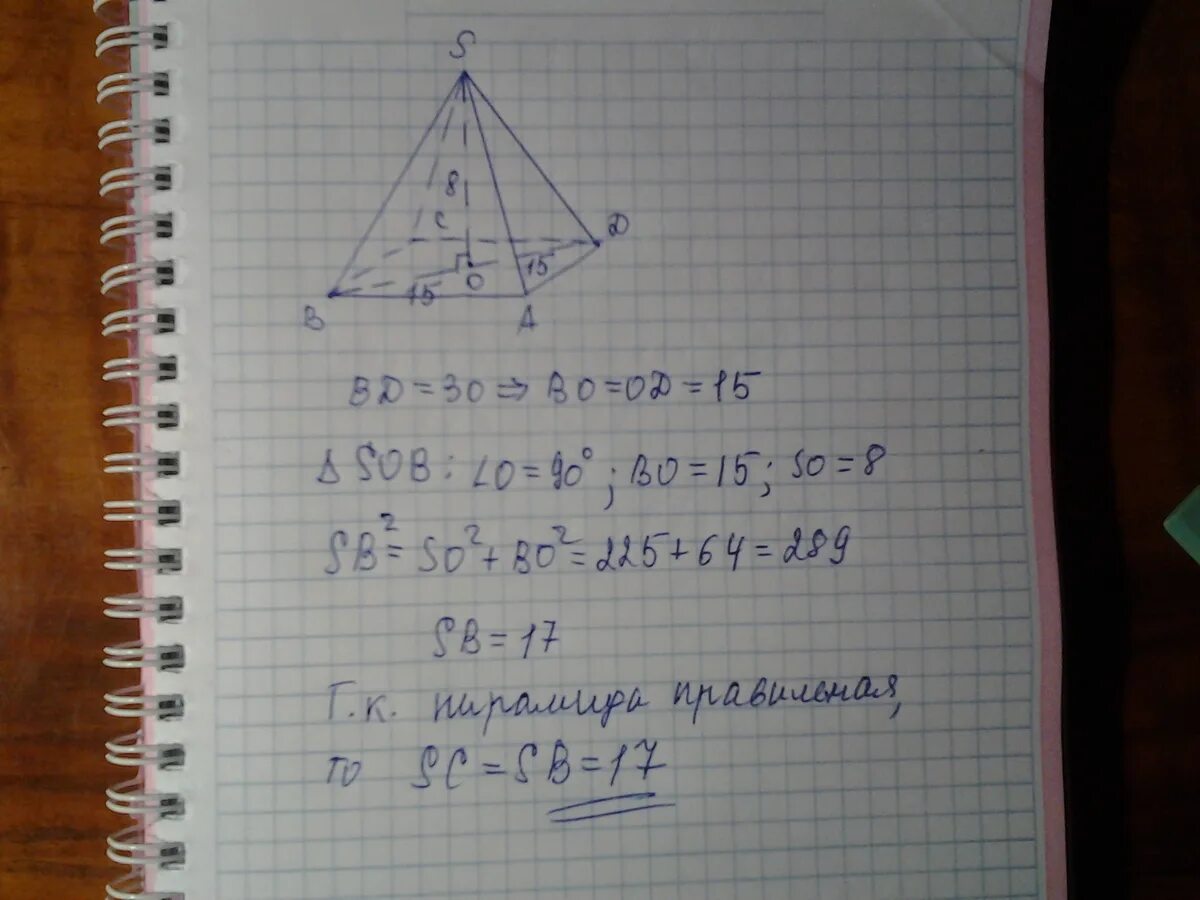 S
8
C
D
15
O
15
B
A
BD = 30 ⇒ BO = OD = 15
Δ SOB : ∠O = 90° ; BO = 15 ; SO = 8
SB² = SO² + BO² = 225 + 64 = 289
SB = 17
Т.к. пирамида правильная,
то SC = SB = 17